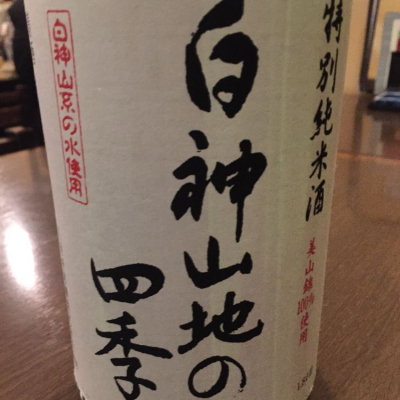 特別純米酒
美山錦
100%使用
白神山地の
四季
白神山系の水使用